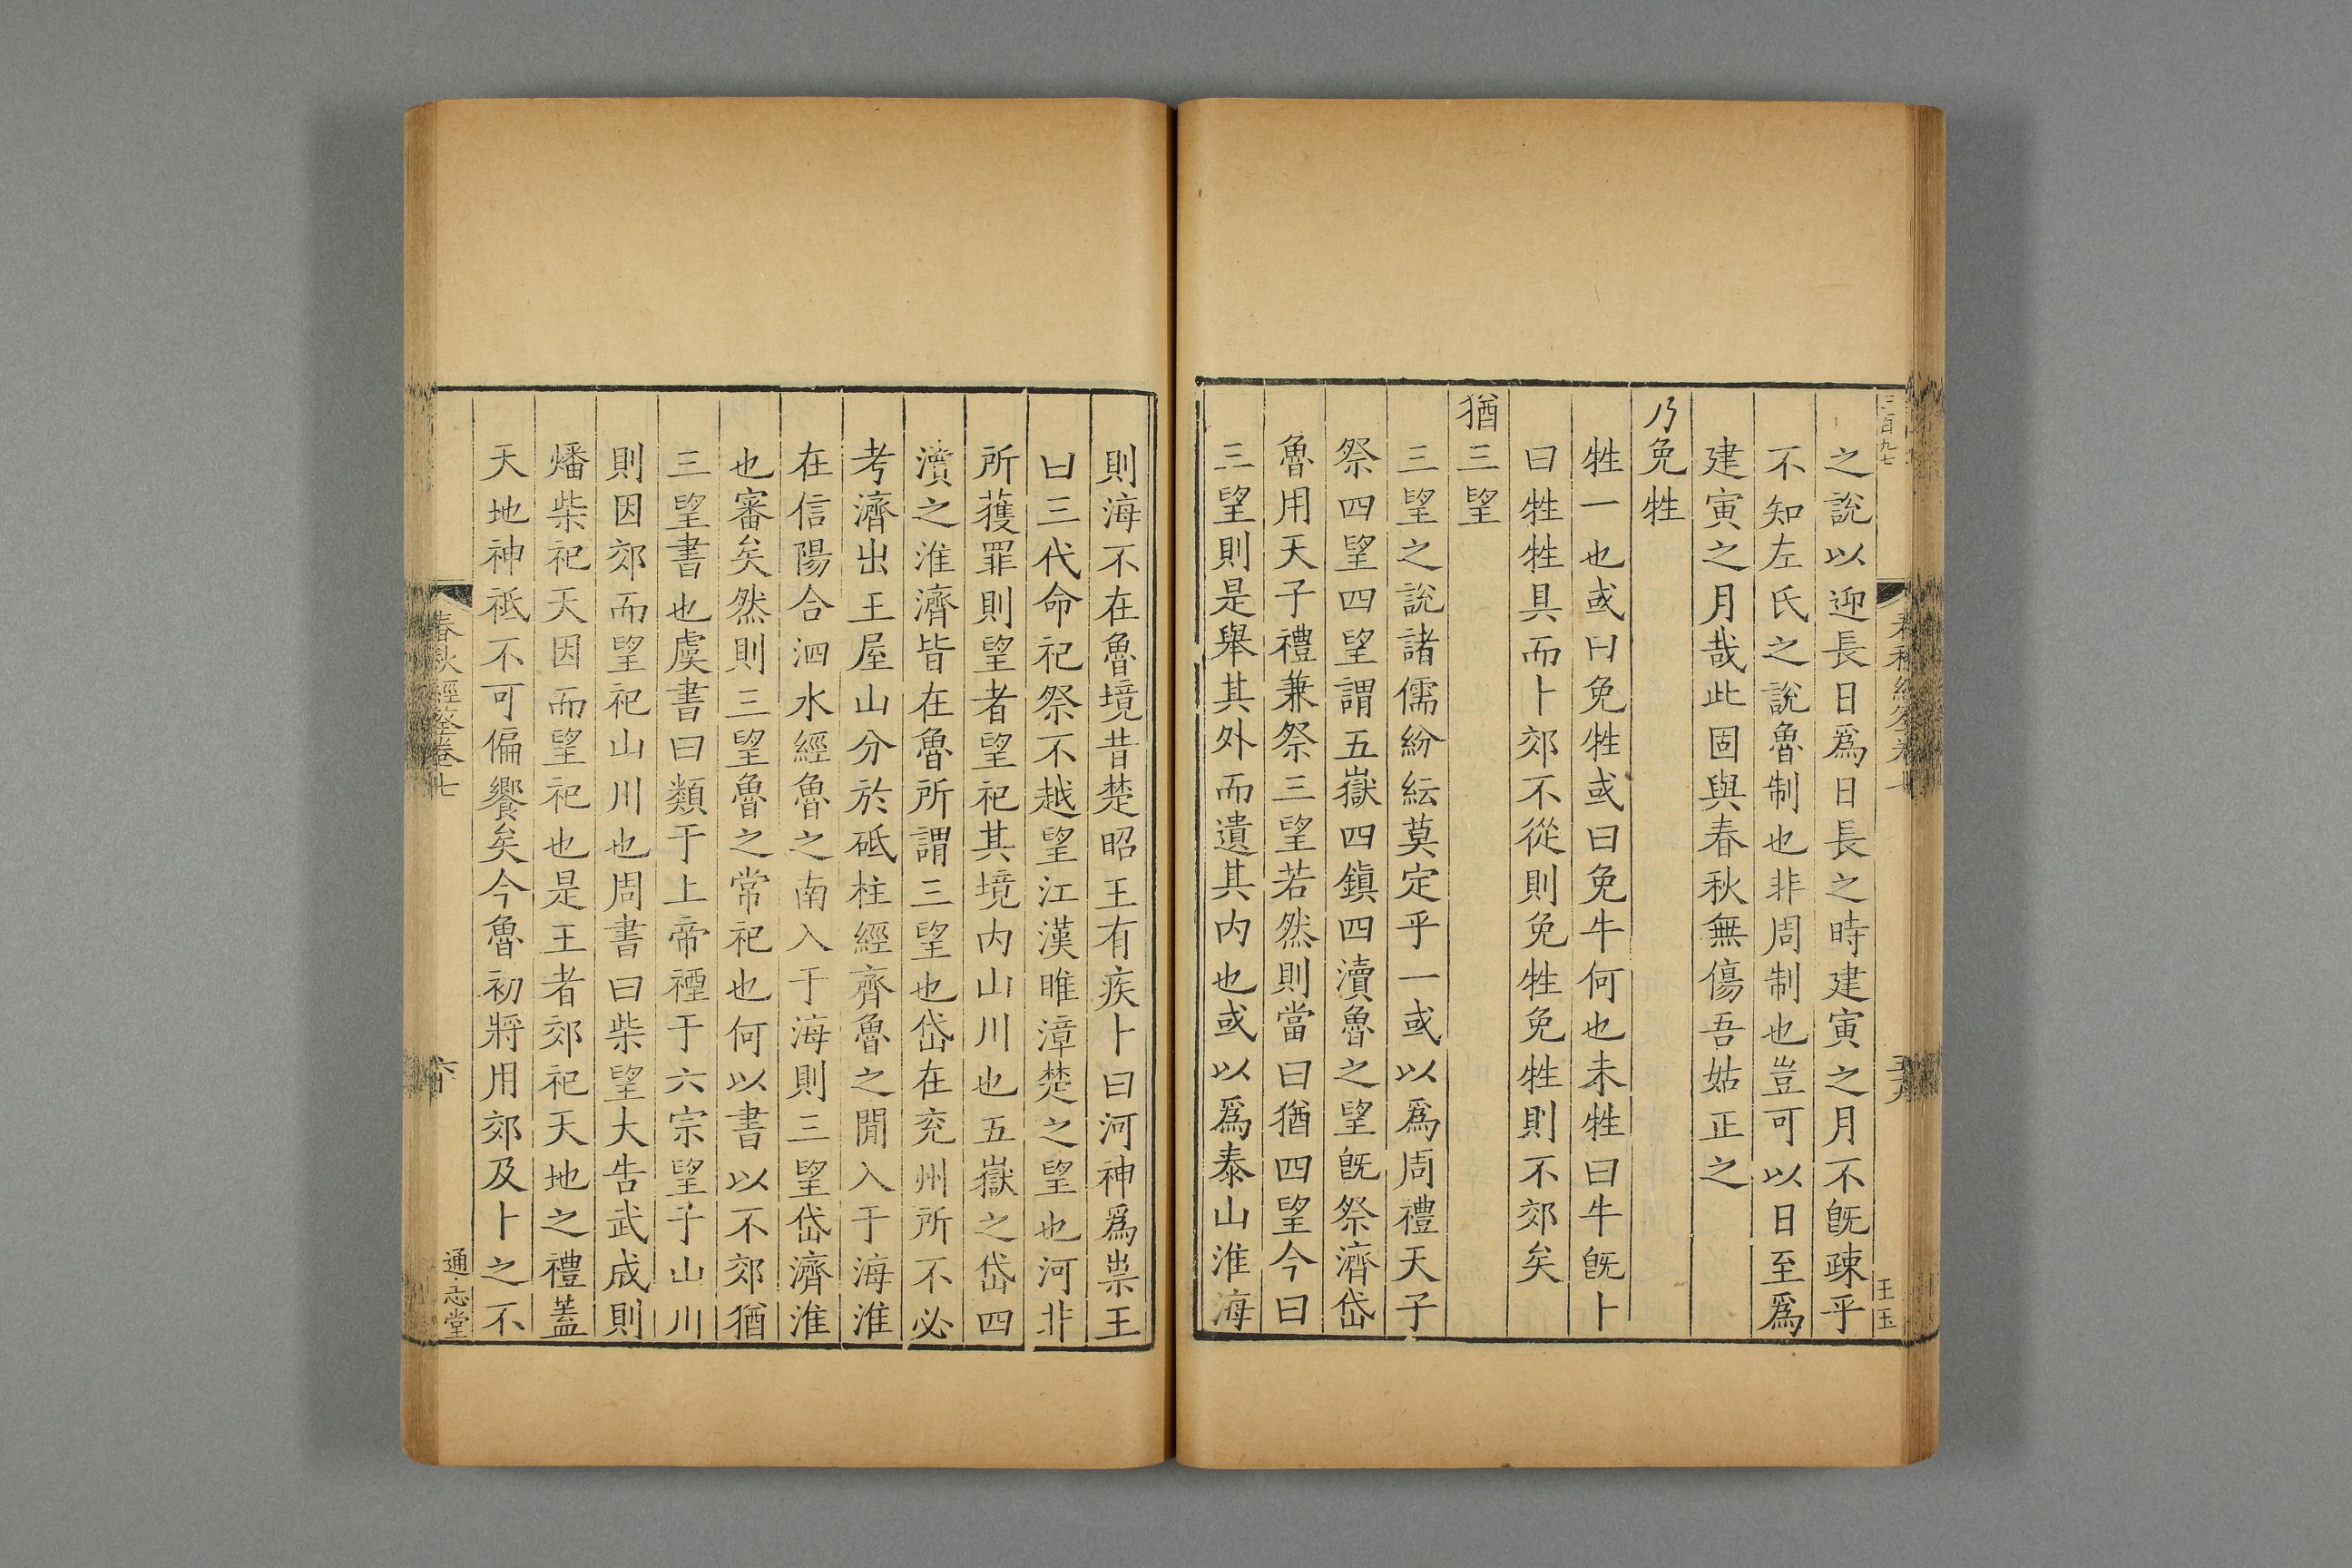 三百九七
王玉
之說以迎長日爲日長之時建寅之月不旣疎乎
不知左氏之說魯制也非周制也豈可以日至爲
建寅之月哉此固與春秋無傷吾姑正之
乃免牲
牲一也或曰免牲或曰免牛何也未牲曰牛旣卜
曰牲牲具而卜郊不從則免牲免牲則不郊矣
猶三望
三望之說諸儒紛紜莫定乎一或以爲周禮天子
祭四望四望謂五嶽四鎭四瀆魯之望旣祭濟岱
魯用天子禮兼祭三望若然則當曰猶四望今曰
三望則是舉其外而遺其内也或以爲泰山淮海
則海不在魯境昔楚昭王有疾卜曰河神爲祟王
曰三代命祀祭不越望江漢睢漳楚之望也河非
所獲罪則望者望祀其境内山川也五嶽之岱四
瀆之淮濟皆在魯所謂三望也岱在兖州所不必
考濟出王屋山分於砥柱經齊魯之閒入于海淮
在信陽合泗水經魯之南入于海則三望岱濟淮
也審矣然則三望魯之常祀也何以書以不郊猶
三望書也虞書曰類于上帝禋于六宗望于山川
則因郊而望祀山川也周書曰柴望大告武成則
燔柴祀天因而望祀也是王者郊祀天地之禮蓋
天地神祇不可偏饗矣今魯初將用郊及卜之不
春秋經筌卷七
通志堂